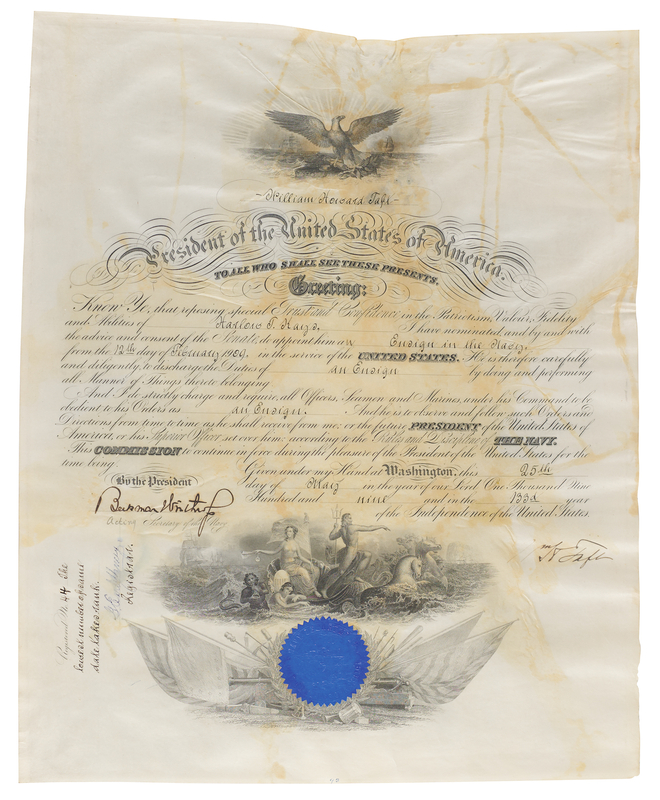 William Howard Taft
President of the United States of America.
TO ALL WHO SHALL SEE THESE PRESENTS,
Greeting:
Know Ye, that reposing special Trust and Confidence in the Patriotism, Valour, Fidelity
and Abilities of Harlow T. Kays. I have nominated, and by and with
the advice and consent of the Senate, do appoint him an Ensign in the Navy
from the 12th day of February 1909, in the service of the UNITED STATES. He is therefore carefully
and diligently to discharge the Duties of an Ensign by doing and performing
all Manner of Things thereto belonging
And I do strictly charge and require all Officers, Seamen and Marines, under his Command to be
obedient to his Orders as an Ensign. And he is to observe and follow such Orders and
Directions from time to time as he shall receive from me, or the future PRESIDENT of the United States of
America, or his Superior Officer set over him, according to the Rules and Discipline of THE NAVY.
This COMMISSION to continue in force during the pleasure of the President of the United States for the
time being.
Given under my Hand at Washington, this 25th
day of May in the year of our Lord One Thousand Nine
Hundred and nine and in the 133d year
of the Independence of the United States.
By the President
Beekman Winthrop
Acting Secretary of the Navy
Wm H Taft
Registrar.
Registered No 44 The
lowest number of same
date takes rank.